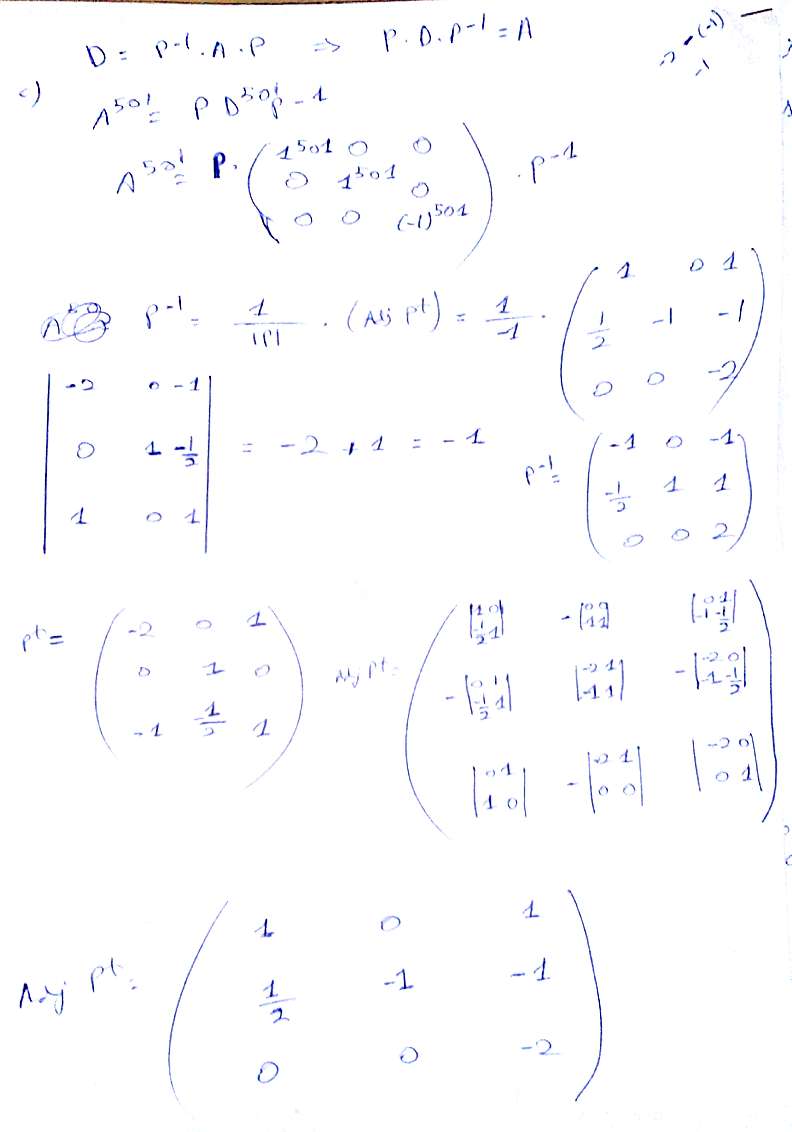 D = P^-1 . A . P => P . D . P^-1 = A
-2 . (-1)
-1
c)
A^501 = P D^501 P^-1
A^501 = P . ( 1^501 0 0
0 1^501 0
0 0 (-1)^501 ) . P^-1
P^-1 = 1/|P| . (Adj P^t) = 1/-1 . ( 1 0 1
1/2 -1 -1
0 0 -2 )
| -2 0 -1
0 1 -1/2
1 0 1 | = -2 + 1 = -1
P^-1 = ( -1 0 -1
-1/2 1 1
0 0 2 )
P^t = ( -2 0 1
0 1 0
-1 1/2 1 )
Adj P^t = ( |1 0
1/2 1| -|0 0
1 1| |0 1
-1 -1/2|
-|0 1
-1/2 1| |-2 1
-1 1| -|-2 0
-1 -1/2|
|0 1
1 0| -|-2 1
0 0| |-2 0
0 1| )
Adj P^t = ( 1 0 1
1/2 -1 -1
0 0 -2 )